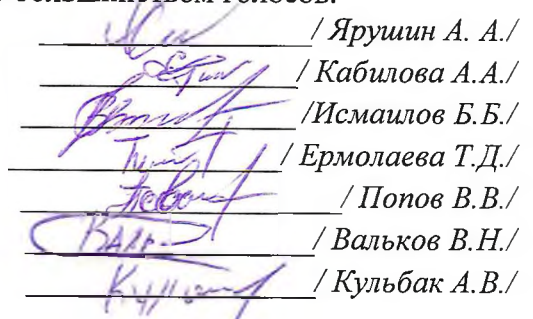 голосов.
/ Ярушин А. А./
/ Кабилова А.А./
/Исмаилов Б.Б./
/ Ермолаева Т.Д./
/ Попов В.В./
/ Вальков В.Н./
/ Кульбак А.В./